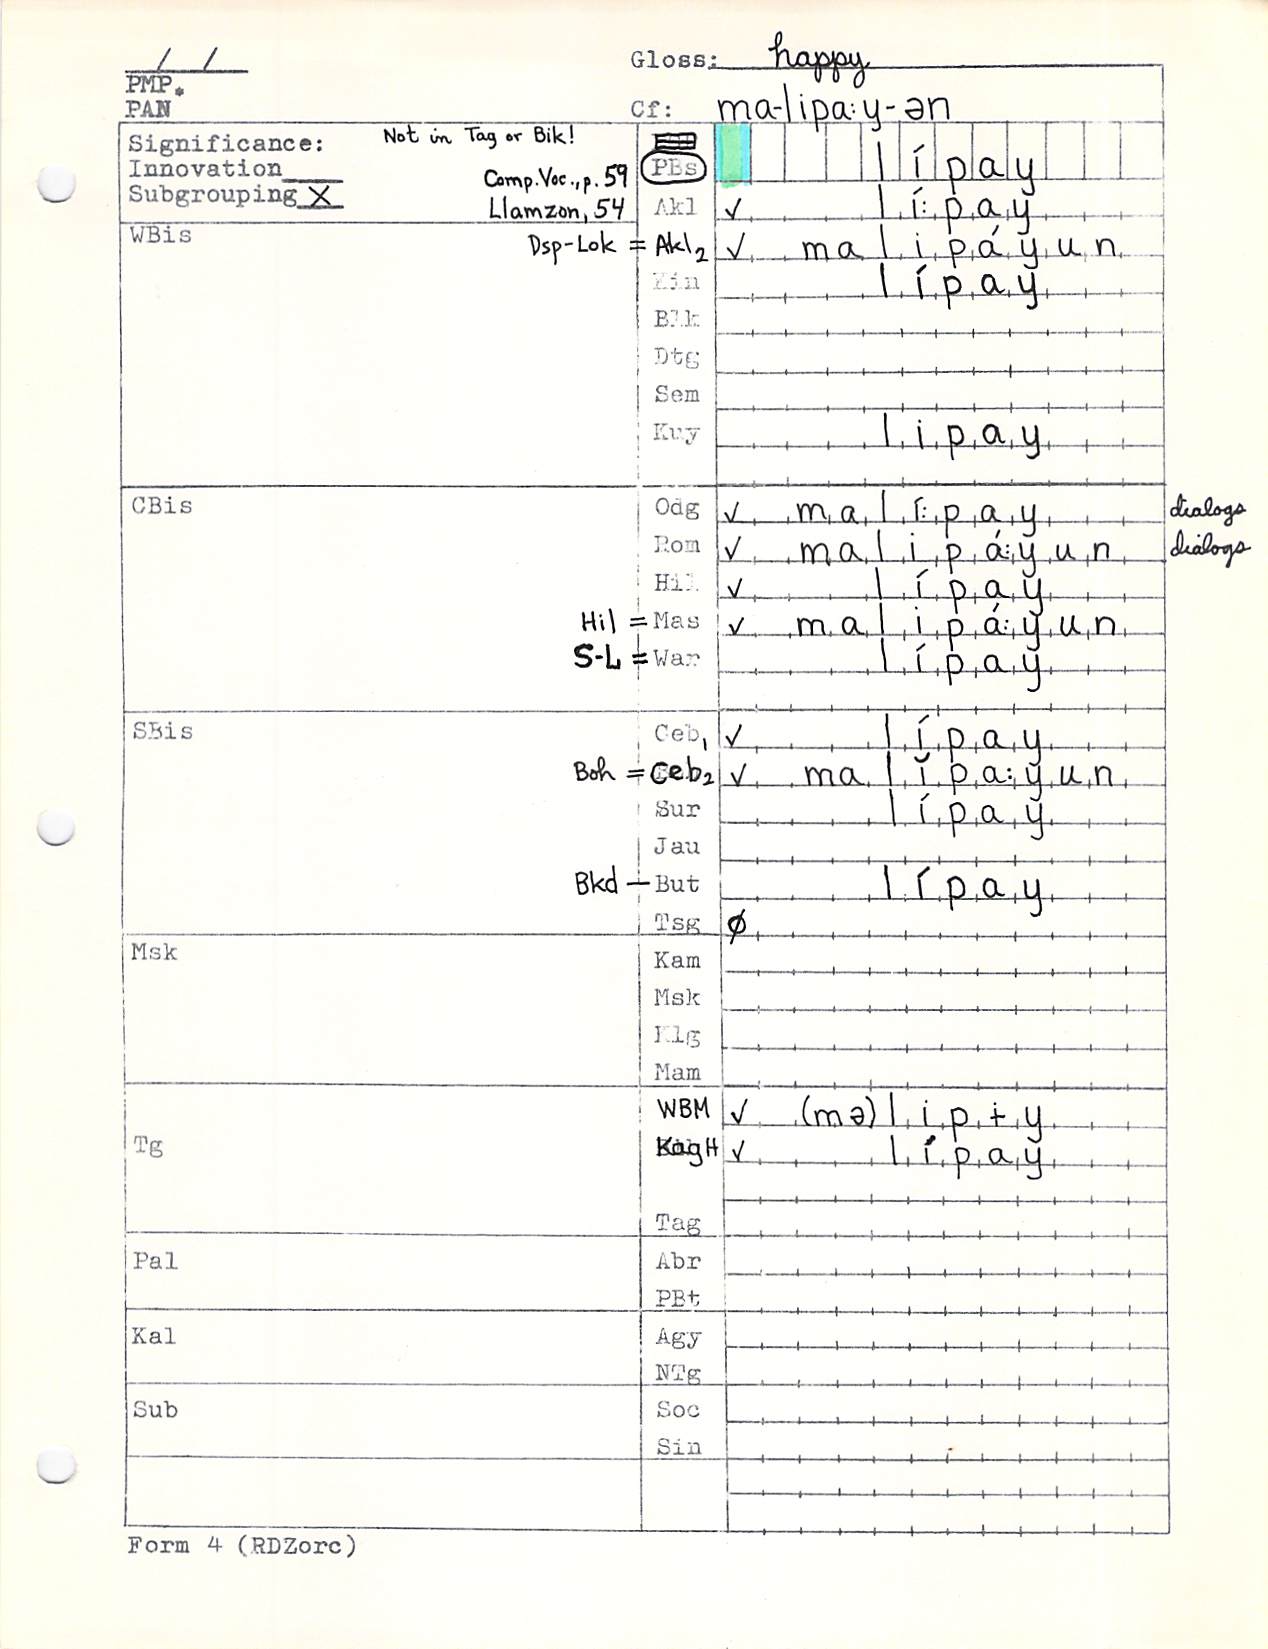 / /
Gloss: happy
PMP.
PAN Cf: ma-lipa:y-ən
Significance: Not in Tag or Bik!
Innovation____ Comp.Voc.,p.59 PBs lípay
Subgrouping X Llamzon, 54 Akl ✓ lí:pay
WBis Dsp-Lok = Akl2 ✓ malipáyun
Kin lípay
Blk
Dtg
Sem
Kuy lipay
CBis Odg ✓ malí:pay dialogs
Rom ✓ malipá:yun dialogs
Hil ✓ lípay
Hil = Mas ✓ malipá:yun
S-L = War lípay
SBis Ceb1 ✓ lípay
Boh = Ceb2 ✓ malĭpa:yun
Sur lípay
Jau
Bkd – But lípay
Tsg ø
Msk Kam
Msk
Klg
Mam
WBM ✓ (mə)lipɨy
Tg KagH ✓ lípay
Tag
Pal Abr
PBt
Kal Agy
NTg
Sub Soc
Sin
Form 4 (RDZorc)